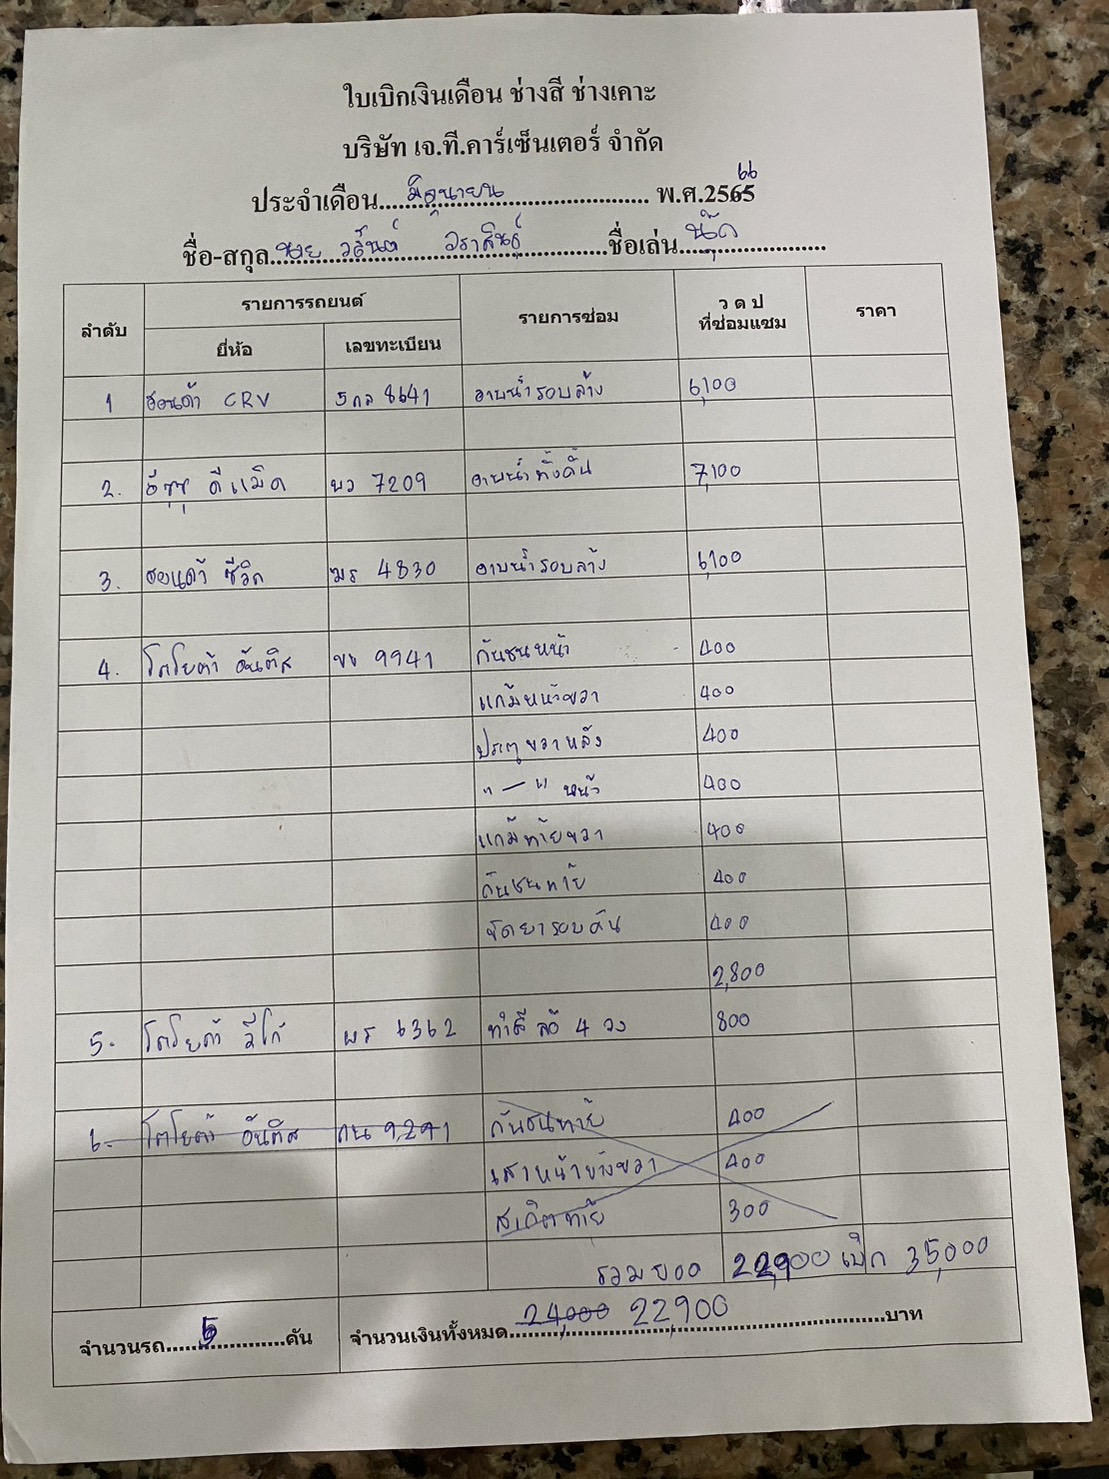 ใบเบิกเงินเดือน ช่างสี ช่างเคาะ
บริษัท เจ.ที.คาร์เซ็นเตอร์ จำกัด
ประจำเดือน....มิถุนายน.... พ.ศ.2565 66
ชื่อ-สกุล นาย วสันต์ วราสินธุ์ ชื่อเล่น นุ๊ก
ลำดับ รายการรถยนต์ รายการซ่อม ว ด ป ที่ซ่อมแซม ราคา
ยี่ห้อ เลขทะเบียน
1 ฮอนด้า CRV 5กล 8641 อาบน้ำรอบล้าง 6,100
2. อีซูซุ ดีแม็ค บว 7209 อาบน้ำทั้งคัน 7,100
3. ฮอนด้า ซีวิค ฆร 4830 อาบน้ำรอบล้าง 6,100
4. โตโยต้า อันติส ขข 9941 กันชนหน้า 400
แก้มหน้าขวา 400
ประตูขวาหลัง 400
"—" หน้า 400
แก้มท้ายขวา 400
กันชนท้าย 400
ขัดยารอบคัน 400
2,800
5. โตโยต้า วีโก้ ผร 6362 ทำสี ล้อ 4 วง 800
6. โตโยต้า อันติส กน 9291 กันชนท้าย 400
เสาหน้าข้างขวา 400
สเกิตท้าย 300
รวมยอด 22,900 เบิก 35,000
จำนวนรถ....5....คัน จำนวนเงินทั้งหมด 24,000 22,900 บาท